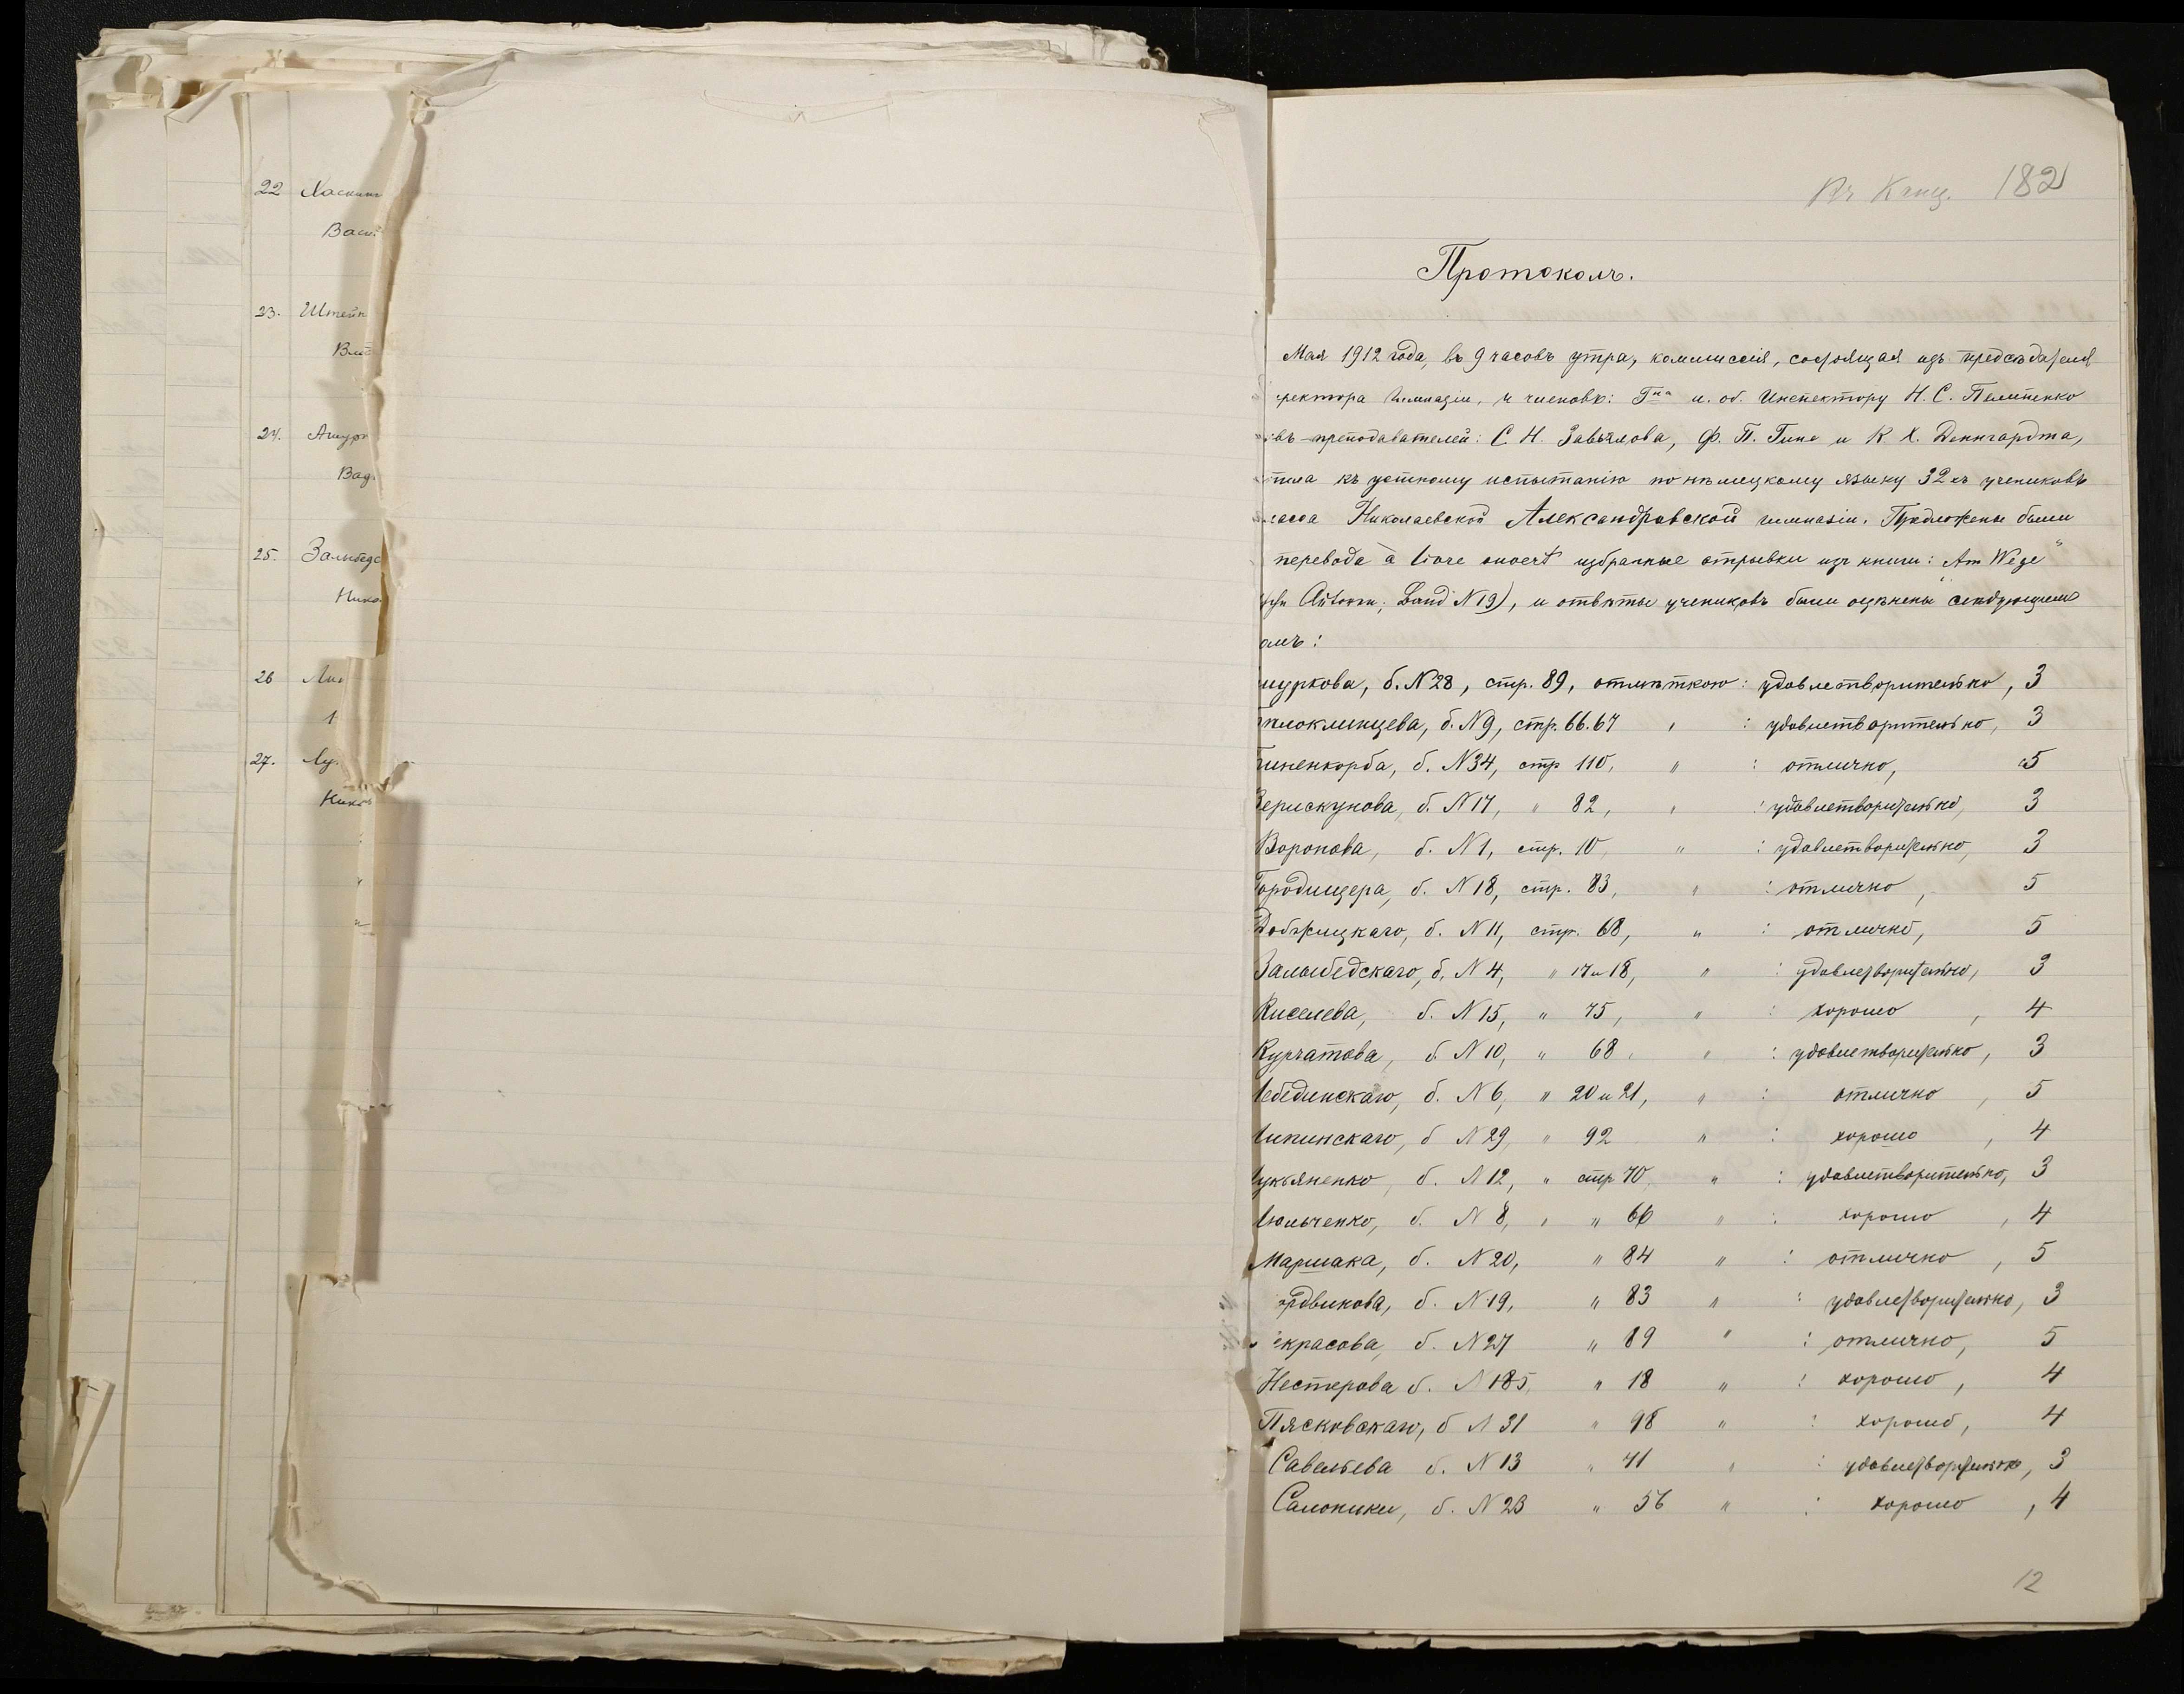 22 Хаскин
Васи
23. Штейн
Вла
24. Ашур
Вад
25. Залюбедс
Нико
26 Ли
27. Лу
Нико
Въ Канц. 182
Протоколъ.
Мая 1912 года, въ 9 часовъ утра, коммиссія, состоящая изъ предсѣдателя
ректора Гимназіи, и членовъ: Гна и. об. Инспектору Н. С. Пелипенко
въ-преподавателей: С. Н. Завьялова, Ф. П. Гине и К. Х. Деннгардта,
тила къ устному испытанію по нѣмецкому языку 32хъ учениковъ
ласса Николаевской Александровской гимназіи. Предложены были
перевода à livre ouvert избранные отрывки изъ книги: „Am Wege"
Band N 19), и отвѣты учениковъ были оцѣнены слѣдующимъ
омъ:
шуркова, б. N 28, стр. 89, отмѣткою: удовлетворительно, 3
локлинцева, б. N 9, стр. 66.67 " : удовлетворительно, 3
иненкорба, б. N 34, стр 110, " : отлично, 5
Верискунова, б. N 17, " 82, " : удовлетворительно, 3
Воронова, б. N 1, стр. 10, " : удовлетворительно, 3
Городищера, б. N 18, стр. 83, " : отлично, 5
Добржицкаго, б. N 11, стр. 68, " : отлично, 5
Залюбедскаго, б. N 4, " 17 и 18, " : удовлетворительно, 3
Киселева, б. N 15, " 75, " : хорошо, 4
Курчатова, б. N 10, " 68, " : удовлетворительно, 3
Лебединскаго, б. N 6, " 20 и 21, " : отлично, 5
Липинскаго, б N 29, " 92 " : хорошо, 4
Лукьяненко, б. N 12, " стр 70, " : удовлетворительно, 3
Люльченко, б. N 8, " " 66 " : хорошо, 4
Маршака, б. N 20, " 84 " : отлично, 5
ордвикова, б. N 19, " 83 " : удовлетворительно, 3
екрасова, б. N 27 " 89 " : отлично, 5
Нестерова б. N 5, " 18 " : хорошо, 4
Пясковскаго, б N 31 " 98 " : хорошо, 4
Савельева б. N 13 " 71 " : удовлетворительно, 3
Салоники, б. N 23 " 56 " : хорошо, 4
12